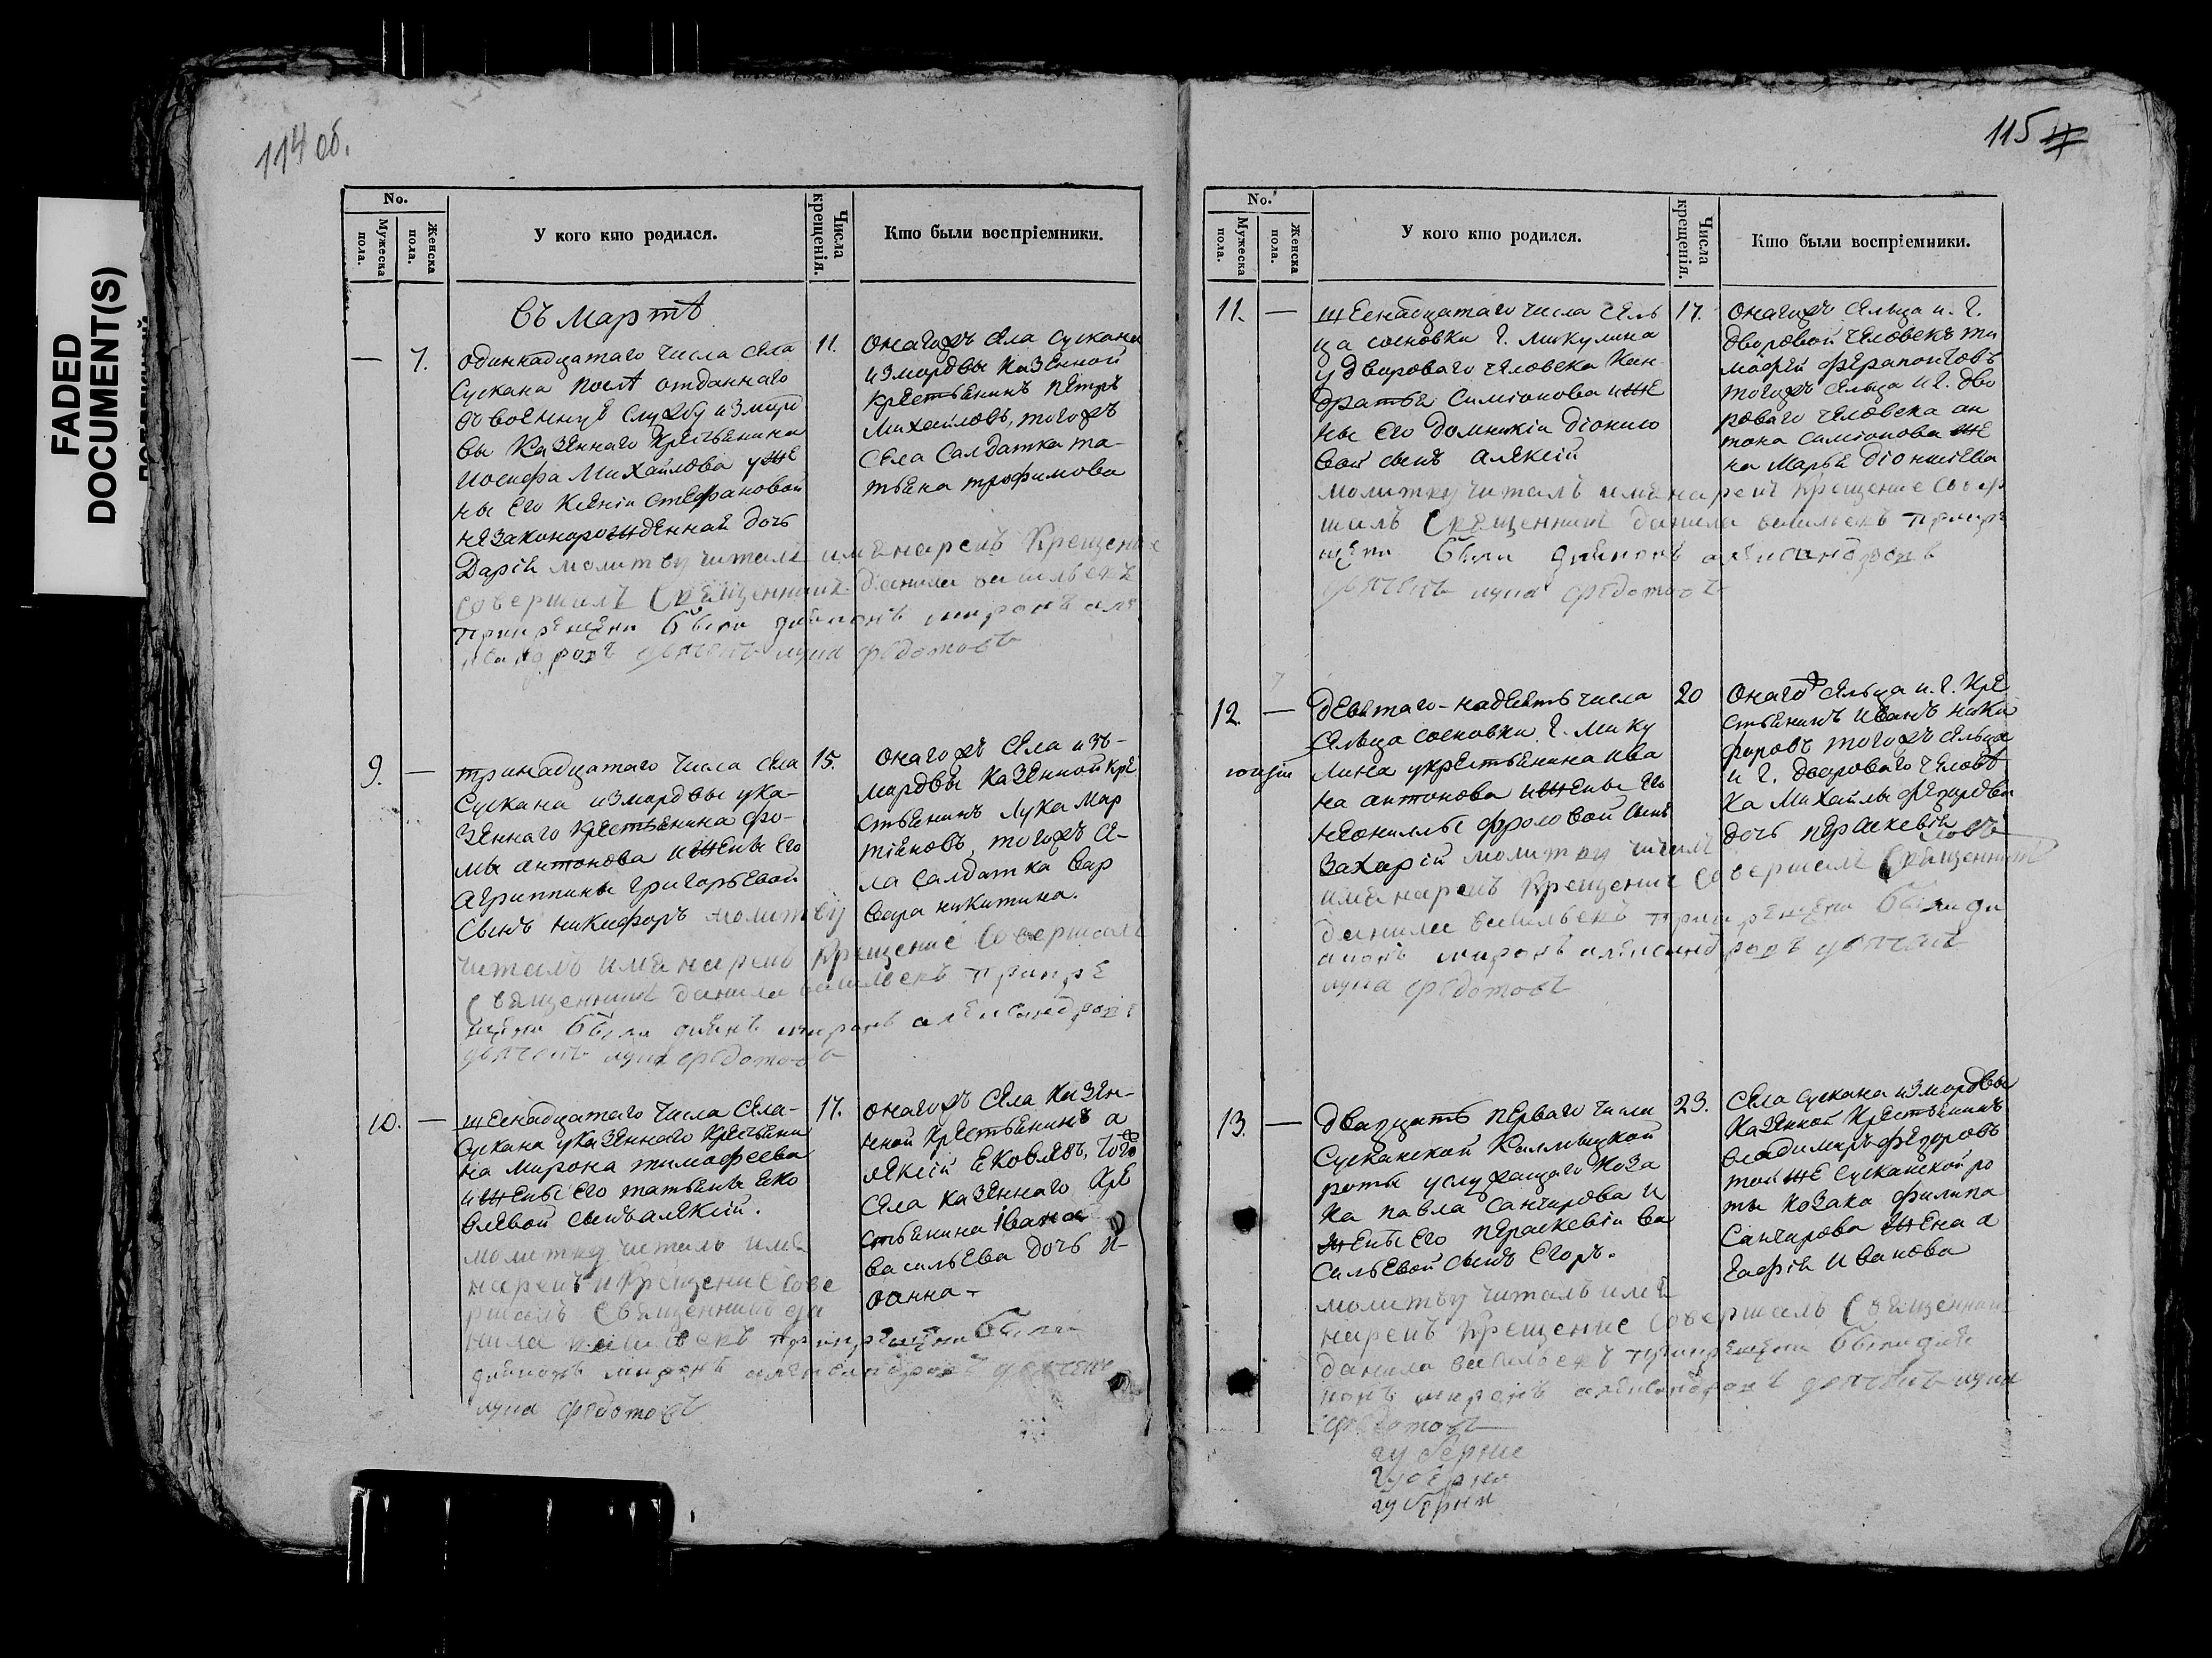 FADED
DOCUMENT(S)
114 об.
No.
Мужеска пола.
Женска пола.
У кого кто родился.
Числа крещенія.
Кто были воспріемники.
Въ Мартѣ
— 7.
одинкадцатаго числа села
Сускана послѣ отданнаго
въ военную службу измырд
вы Казеннаго Крестьянина
Иосифа Михайлова уже
ны его Ксеніи Стефановой
незаконорожденная дочь
Дарія молитву читалъ имя нарекъ Крещение
совершилъ Священникъ данила васильевъ
при крещени были диаконъ миронъ але
ксандровъ дьячекъ лука федотовъ
11.
онагожъ села Сускана
измордвы Казенной
крестьянинъ Петръ
Михайловъ, тогожъ
Села Салдатка та-
тьяна трофимова
9. —
тринадцатаго числа села
Сускана измордвы ука-
зеннаго Крестьянина фо-
мы антонова и жены его
Агриппины григорьевой
Сынъ никифоръ молитву
читалъ имя нарекъ Крещение совершалъ
Священникъ данила васильевъ при кре
щени были диаконъ миронъ александровъ
дьячекъ лука федотовъ
15.
онагожъ села изъ-
мордвы Казенной кре
стьянинъ Лука Мар
тіяновъ, тогожъ се-
ла Салдатка Вар
вара никитина.
10. —
шеснадцатаго числа села-
Сускана указеннаго крестьяни
на Мирона тимофеева
и жены его татьяны яко
влевой сынъ алексій.
молитву читалъ имя
нарекъ и Крещение сове
ршалъ Священникъ да
нила васильевъ при крещени были
диаконъ миронъ александровъ дьячекъ
лука федотовъ
17.
онагожъ села Казен-
ной крестьянинъ а
лексій яковлевъ, того
села казеннаго кре
стьянина Івана
васильева дочь и-
оанна-
115
No.
Мужеска пола.
Женска пола.
У кого кто родился.
Числа крещенія.
Кто были воспріемники.
11. —
шеснадцатаго числа сель
ца сосновки г. микулина
у двороваго человека Кон-
дратья Симіонова и же
ны его домникіи діонисо
вой сынъ алексій
молитву читалъ имя нарекъ Крещение совер
шалъ Священникъ данила васильевъ при кре
щени были диаконъ александровъ
дьячекъ лука федотовъ
17.
онагожъ сельца и. г.
дворовой человекъ ти
мофей ферапонтовъ
тогожъ сельца и г. дво
роваго человека ан
тона симіонова же
на Марья діонисіева
12. —
девятаго-надесять числа
сельца сосновки г. мику
лина укрестьянина ива
на антонова и жены его
неониллы фроловой сынъ
Захарій молитву читалъ
имя нарекъ Крещение совершалъ Священникъ
данила васильевъ при крещени были ди
аконъ миронъ александровъ дьячекъ
лука федотовъ
20
онагожъ сельца и. г. кре
стьянинъ иванъ ники
форовъ тогожъ сельца
и г. двороваго челове
ка Михайлы федорова
дочь параскевія
13. —
двадцать перваго числа
Сусканской Калмыцкой
роты услужащаго Коза
ка павла Санчирова и
жены его параскевіи ва
сильевой сынъ Егоръ.
молитву читалъ имя
нарекъ Крещение совершалъ Священникъ
данила васильевъ при крещени были диа
конъ миронъ александровъ дьячекъ лука
федотовъ
23.
Села сускана измордвы
Казенной Крестьянинъ
владимиръ федоровъ
той же сусканской ро
ты козака филипа
Санчирова жена а
гафія иванова
губерние
губерни
губерни